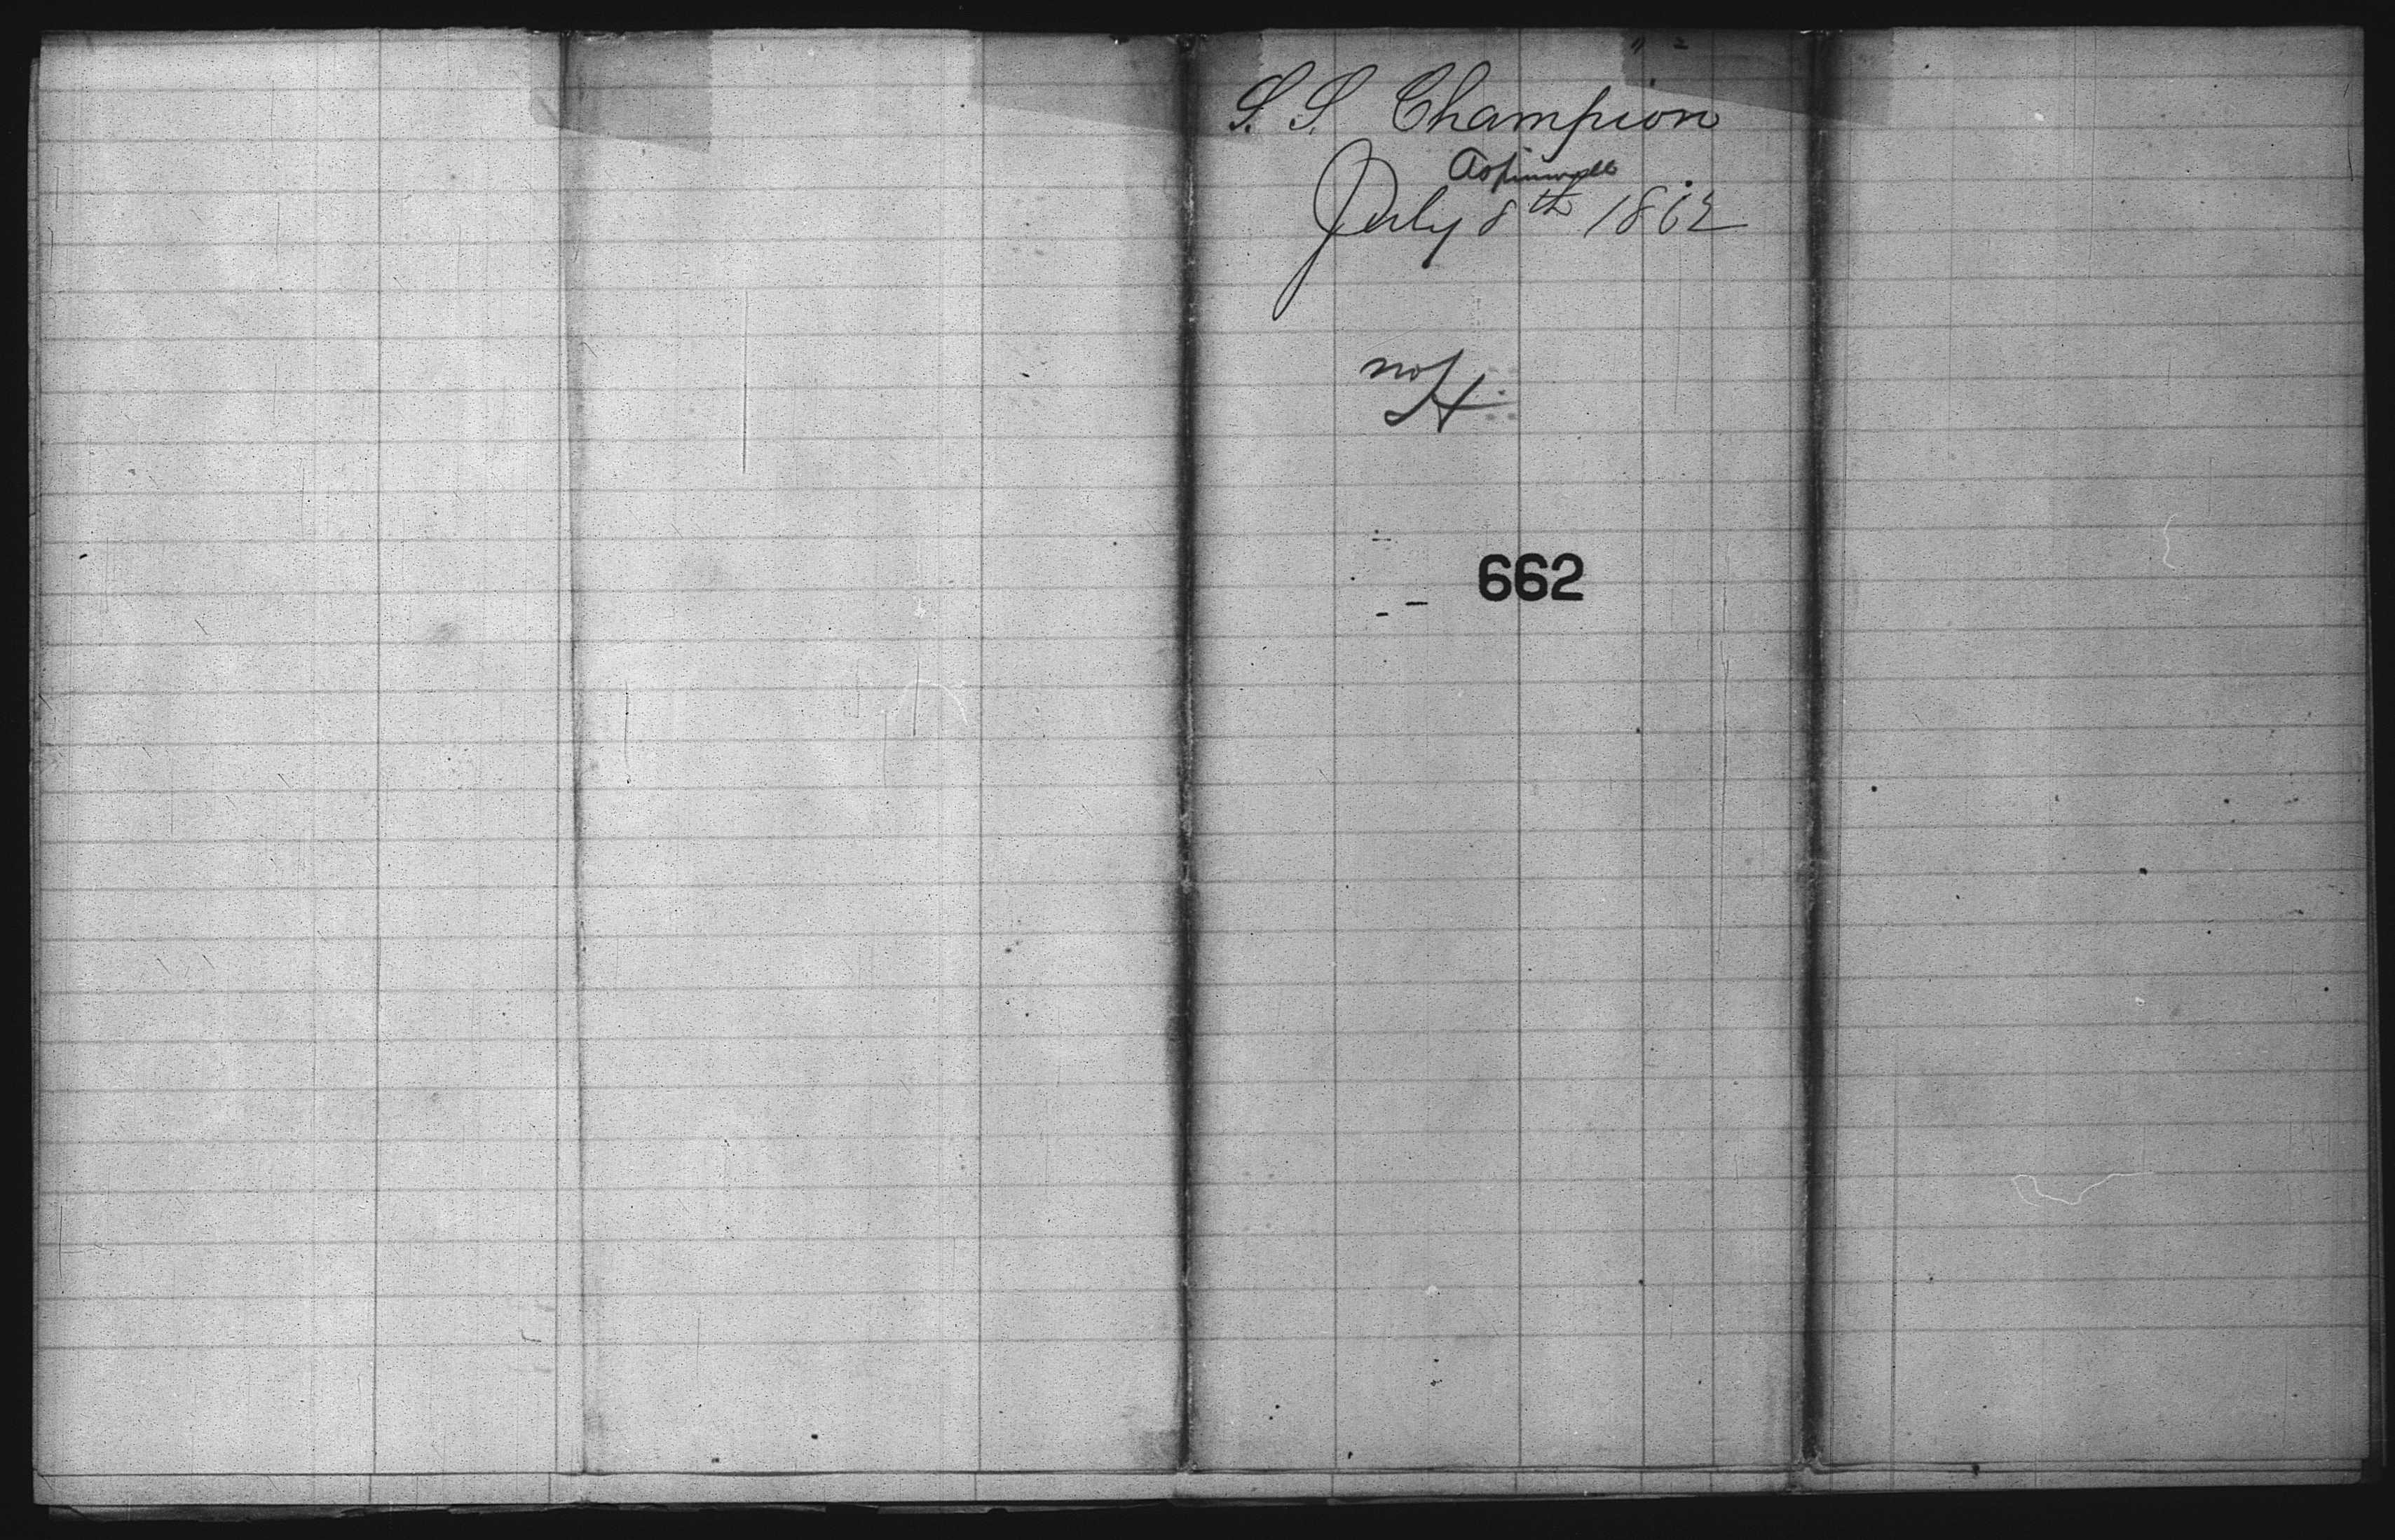 S. S. Champion
Aspinwall
July 8th 1862
662